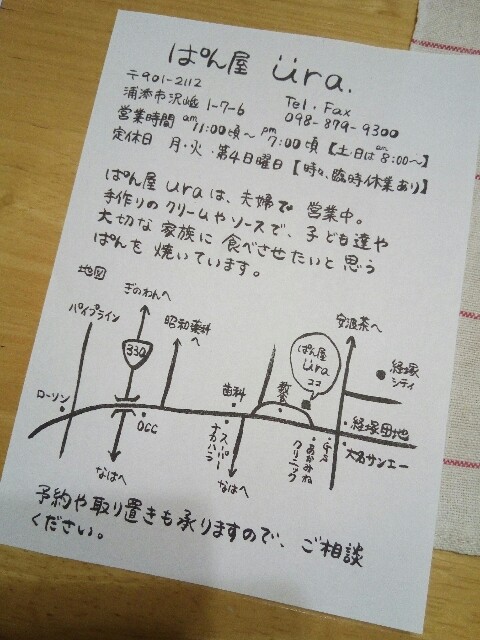 ぱん屋 üra.
〒901-2112
浦添市沢岻 1-7-6
Tel・Fax
098-879-9300
営業時間 am11:00頃～pm7:00頃【土・日は am8:00～】
定休日 月・火・第4日曜日【時々、臨時休業あり】
ぱん屋 üraは、夫婦で 営業中。
手作りのクリームやソースで、子ども達や
大切な家族に 食べさせたいと思う
ぱんを 焼いています。
地図
ぎのわんへ
パイプライン
330
昭和薬科へ
安波茶へ
ぱん屋
üra
ココ
経塚シティ
ローソン
OCC
歯科
スーパーナカハラ
教会
G.S
あかみねクリニック
経塚団地
大名サンエー
なはへ
なはへ
予約や取り置きも承りますので、ご相談
ください。